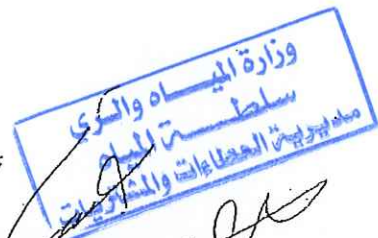 وزارة الميـــاه والـري
سلطـــــة المياه
مديرية العطاءات والمشتريات